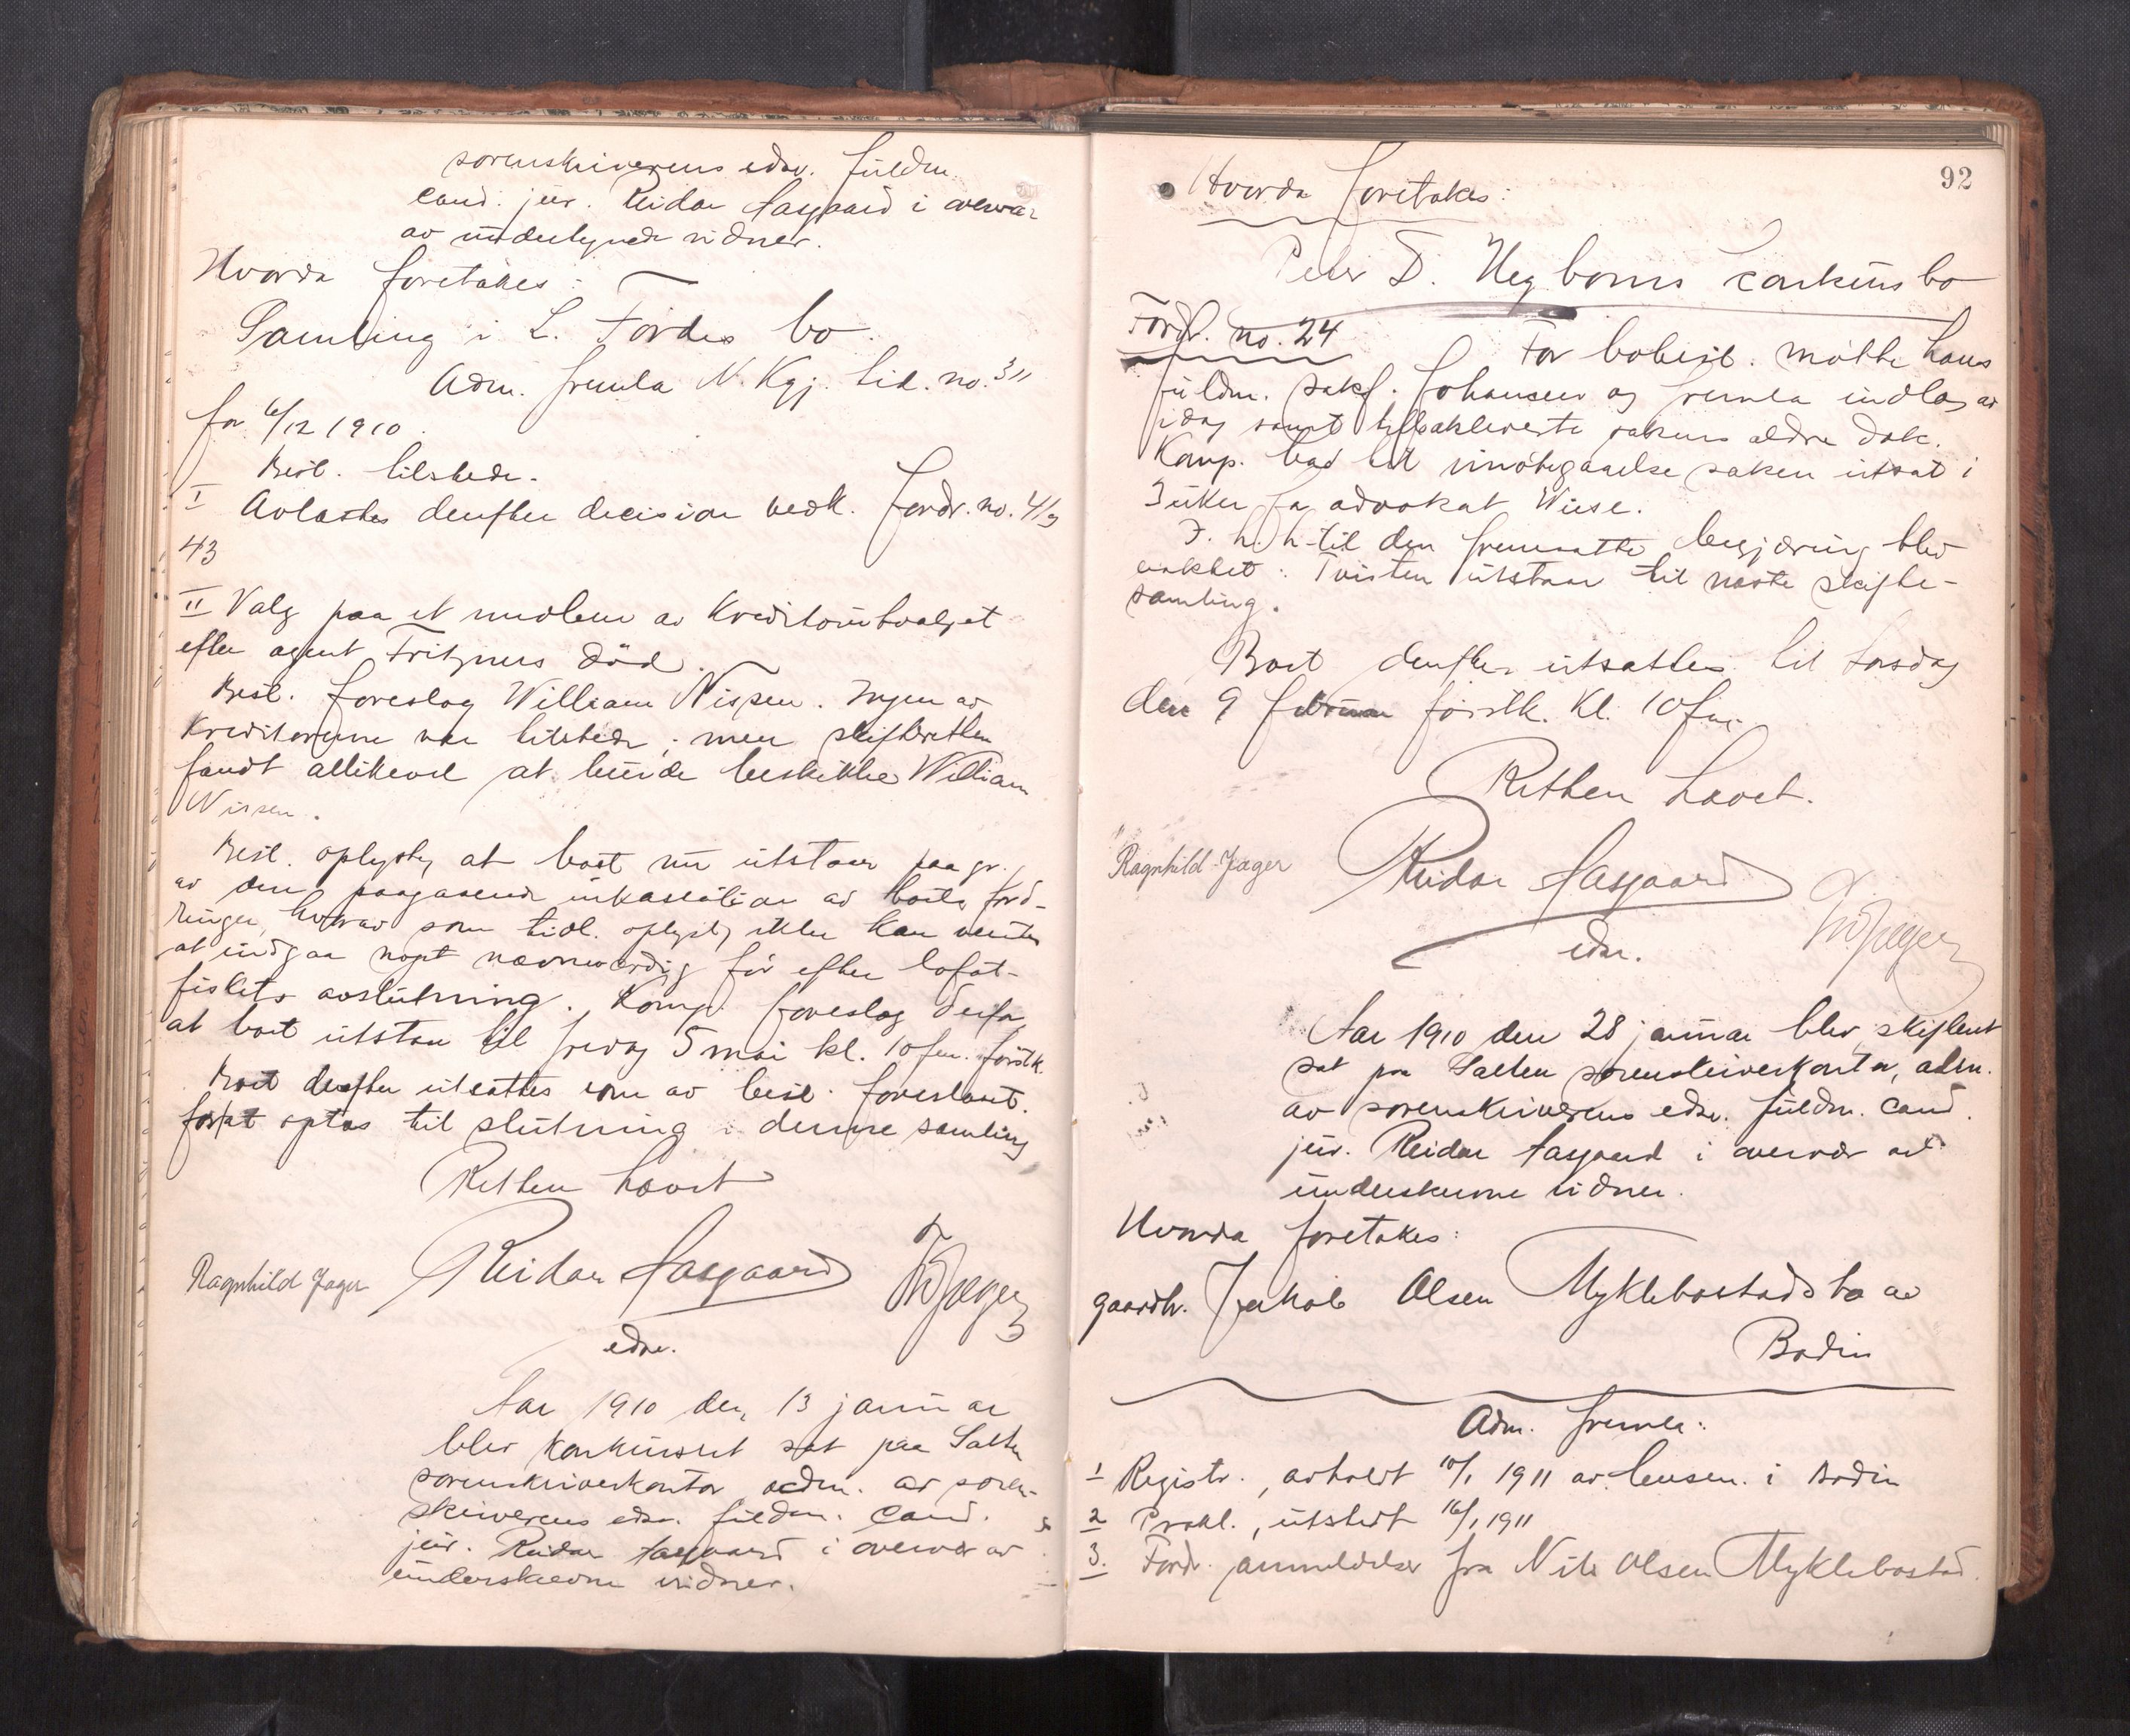 sorenskriverens edsv. fuldm.
cand. jur. Reidar Aasgaard i overvær
av undertegnede vidner.
Hvorda foretakes:
Samling i L. Fördes bo.
Adm. fremla N. Kgj. tid. no. 311
for 6/12 1910.
Best. tilstede.
I Avlastes derefter decision vedk. fordr. no. 4/9
43
II Valg paa et medlem av Kreditorutvalget
efter agent Fritzners död.
Best. foreslog William Nissen. Ingen av
kreditorerne var tilstede; men skifteretten
fandt allikevel at burde beskikke William
Nissen.
Best. oplyste, at boet nu utstaar paa gr.
av den paagaaende inkassation av boets ford-
ringer, hvorav som tidl. oplyst, ikke kan ventes
at indgaa noget nævneværdig för efter lofot-
fiskets avslutning. Komp. foreslog derfor
at boet utstaar til fredag 5 mai kl. 10 fm. förstk.
Boet derefter utsattes som av best. foreslaaet.
forat optas til slutning i denne samling
Retten hævet
Ragnhild Jager Reidar Aasgaard Th Jæger
edsv.
Aar 1910 den 13 januar
blev konkursret sat paa Salten
sorenskriverkontor adm. av soren-
skriverens edsv. fuldm. cand.
jur. Reidar Aasgaard i overvær av
underskrevne vidner.
92
Hvorda foretakes:
Peter D. Hegboms konkursbo
Fordr. no. 24
For bobest. mötte hans
fuldm. sakf. Johansen og fremla indlæg av
idag samt tilbakleverte sakens ældre dok.
Komp. bad til imötegaaelse saken utsat i
3 uker fra advokat Wiese.
I. h. h. til den fremsatte begjæring blev
vakket: Tvisten utstaar til næste skifte-
samling.
Boet derefter utsattes til torsdag
den 9 februar förstk. kl. 10 fm.
Retten hævet.
Ragnhild Jager Reidar Aasgaard
edsv. Th Jæger
Aar 1910 den 28 januar blev skifteret
sat paa Salten sorenskriverkontor, adm.
av sorenskriverens edsv. fuldm. cand.
jur. Reidar Aasgaard i overvær av
underskrevne vidner.
Hvorda foretakes:
gaardbr. Jakob Olsen Myklebostads bo av
Bodin
Adm. fremla:
1 Registr., avholdt 10/1 1911 av lensm. i Bodin
2 Prokl., utstedt 16/1 1911
3. Fordr. anmeldelse fra Nils Olsen Myklebostad.